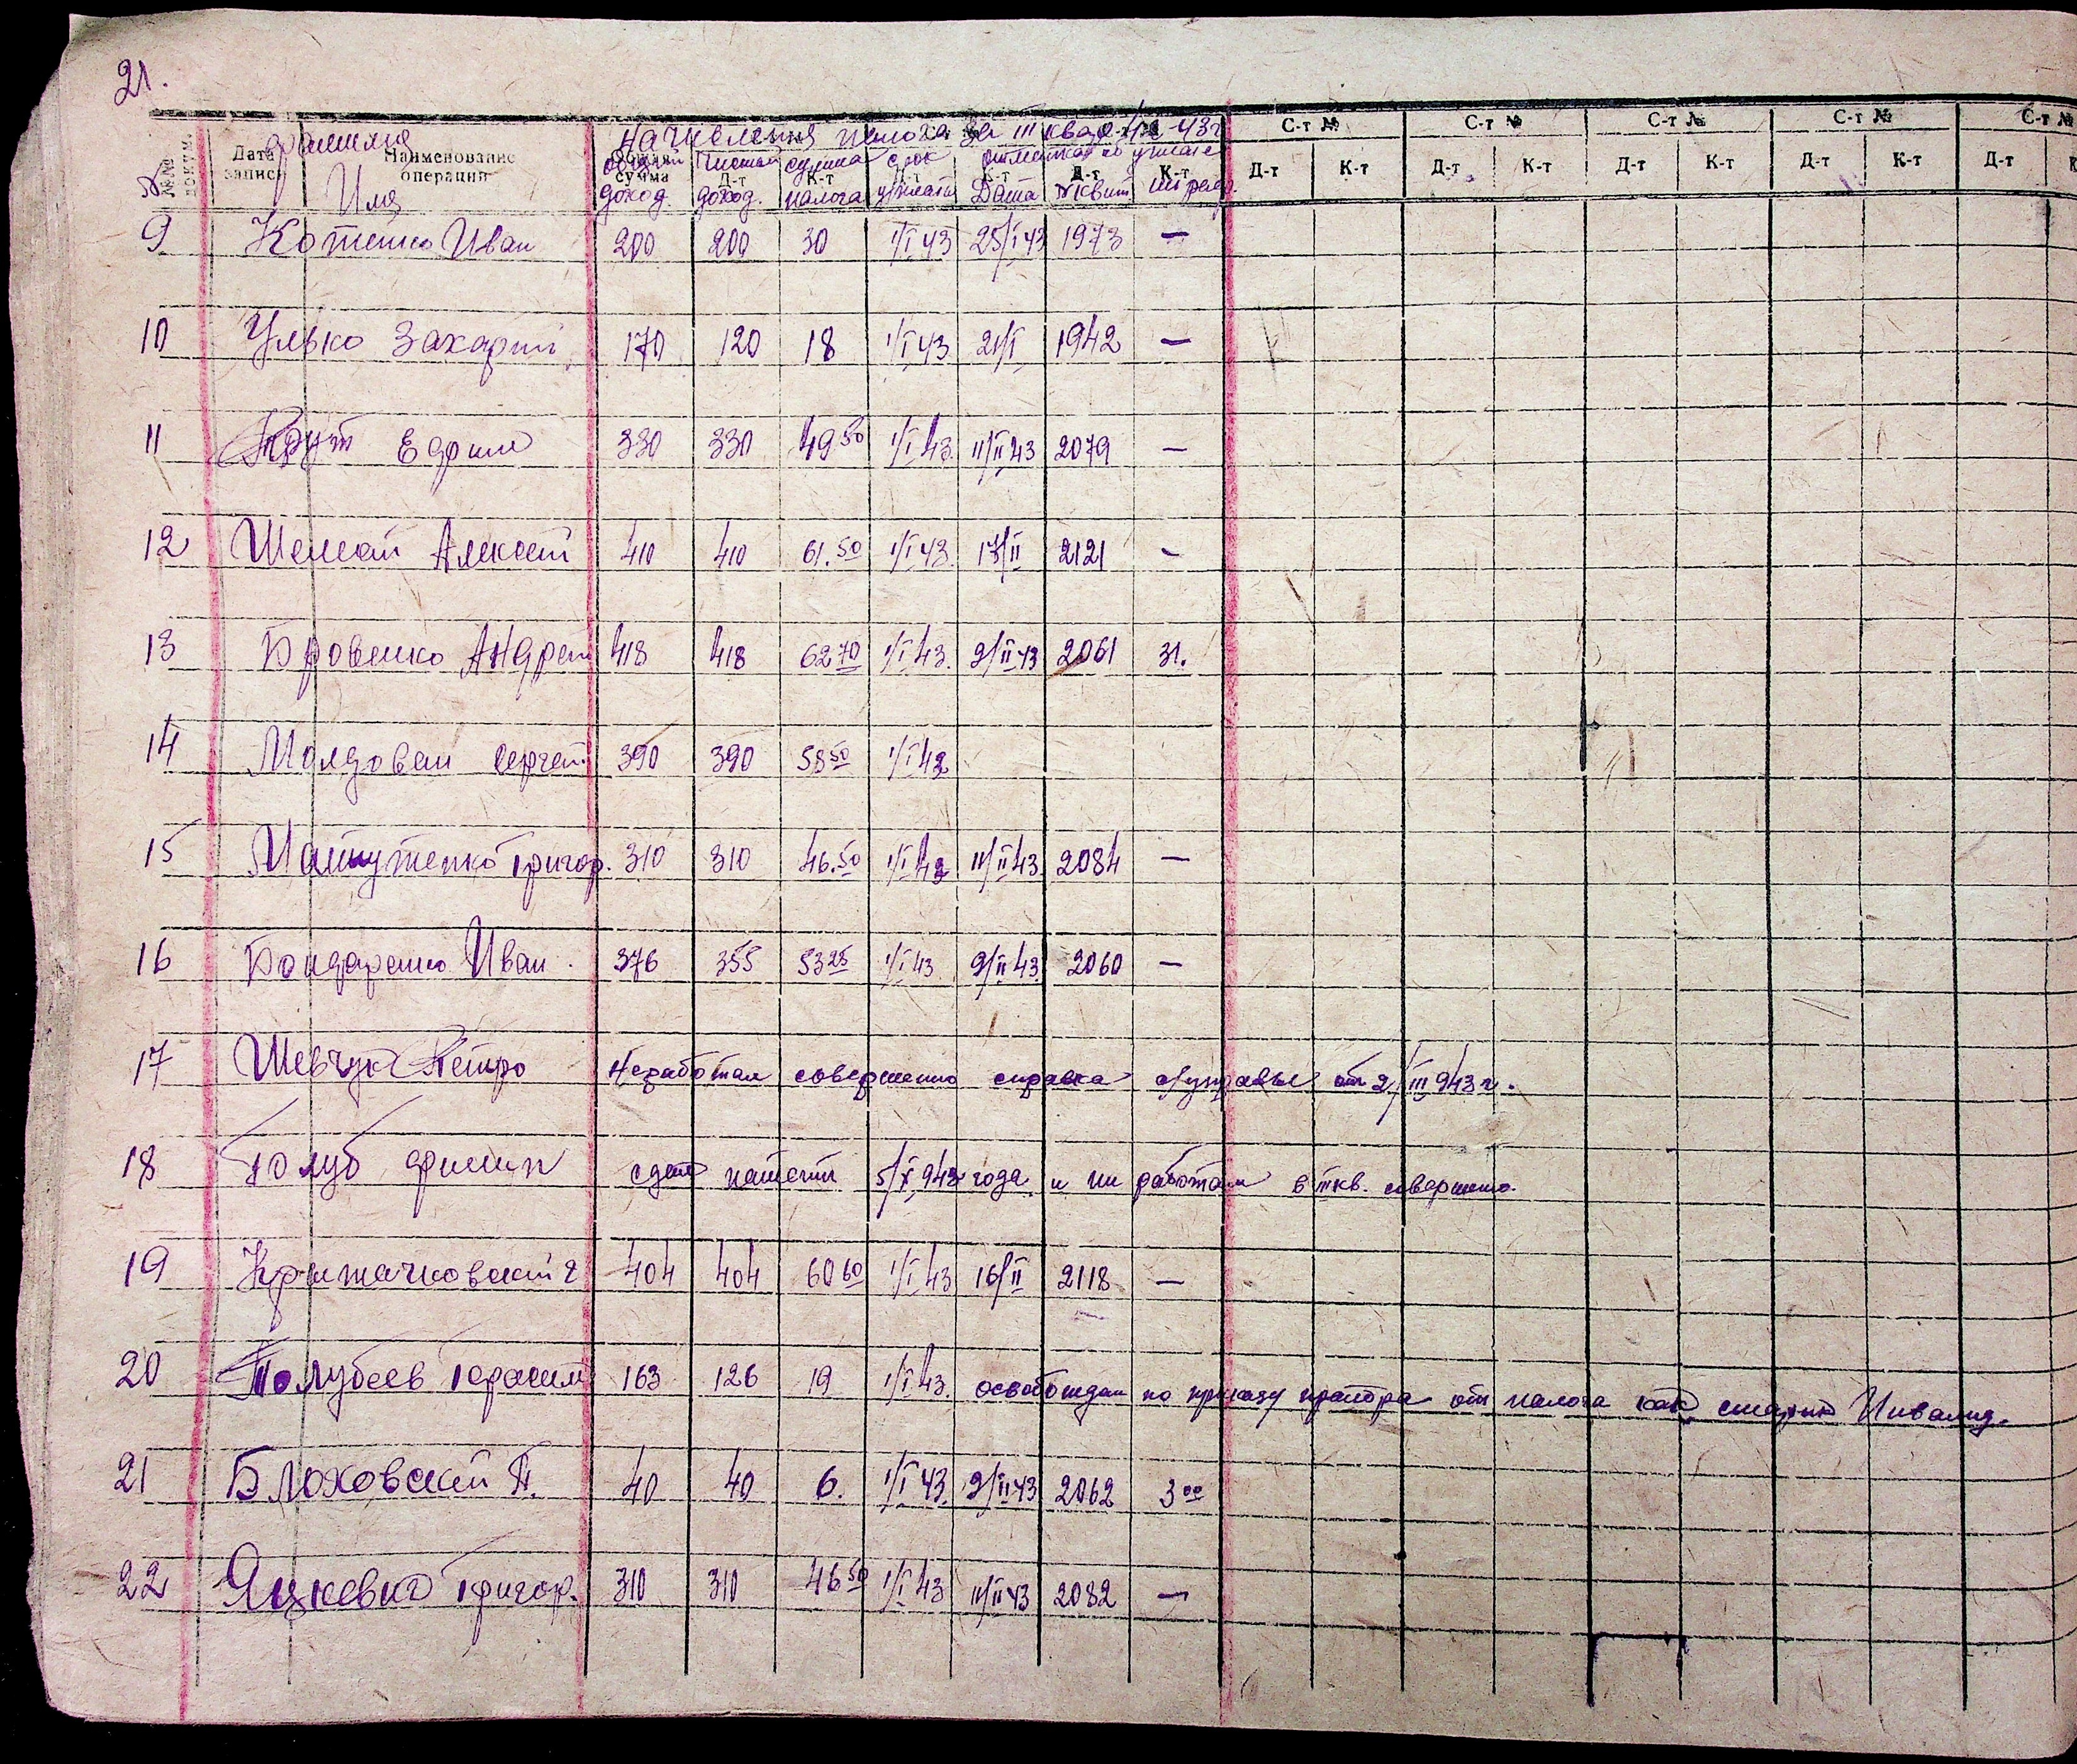 21.
С-т № С-т № С-т № С-т № С-т №
фамилия Начисления налога за III квар. 43г
№№ докум. Дата записи Наименование операции Общая сумма Д-т К-т К-т Д-т К-т Д-т К-т Д-т К-т Д-т К-т Д-т К-т Д-т
№ Имя доход чистый доход. сумма налога срок уплаты отметка об уплате Дата № квит. штраф.
9 Котенко Иван 200 200 30 1/I 43 25/I 43 1973 —
10 Улько Захарий 170 120 18 1/I 43 21/I 1942 —
11 Прут Ефим 330 330 49 50 1/I 43. 11/II 43 2079 —
12 Шелест Алексей 410 410 61.50 1/I 43. 17/II 2121 -
13 Бровенко Андрей 418 418 62 70 1/I 43. 9/II 43 2061 31.
14 Молдован Сергей 390 390 58 50 1/I 43
15 Григор. 310 310 46.50 1/I 43 11/II 43 2084 —
16 Бондаренко Иван. 376 355 53 25 1/I 43 9/II 43. 2060 —
17 Шевчук Петро Неработал совершенно справка с/управы от 2/III 943 г.
18 Голуб Филип сдал патент 5/X 942 года и ни работал в III кв. совершенно.
19 Крижачковский 404 404 60 60 1/I 43 16/II 2118 —
20 Голубеев Герасим 163 126 19 1/I 43. освобожден по приказу претора от налога как старик Инвалид.
21 Блоховский П. 40 40 6. 1/I 43. 9/II 43 2062 3 00
22 Яцкевич Григор. 310 310 46 50 1/I 43 11/II 43 2082 —